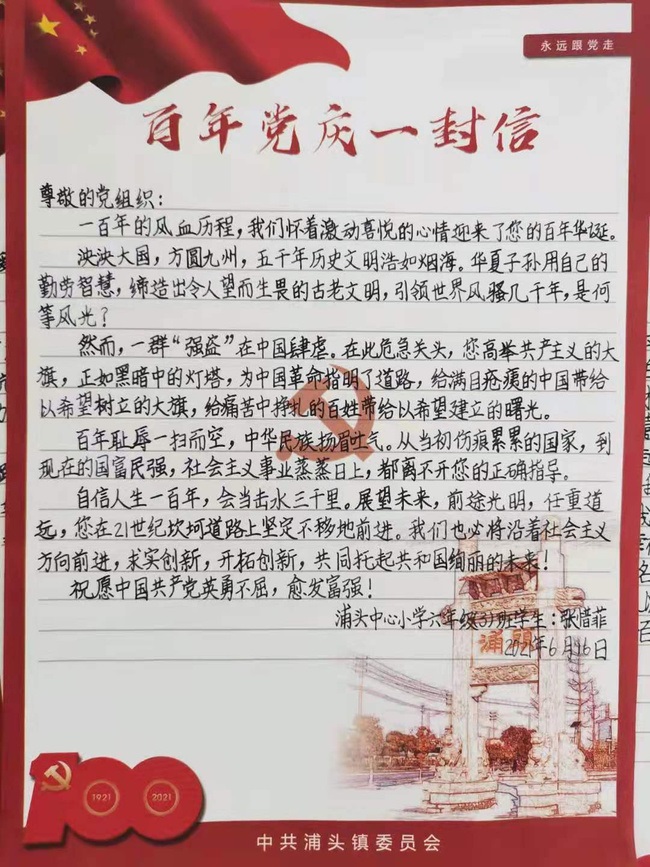 永远跟党走
百年党庆一封信
尊敬的党组织：
一百年的风血历程，我们怀着激动喜悦的心情迎来了您的百年华诞。
泱泱大国，方圆九州，五千年历史文明浩如烟海。华夏子孙用自己的
勤劳智慧，缔造出令人望而生畏的古老文明，引领世界风骚几千年，是何
等风光？
然而，一群“强盗”在中国肆虐。在此危急关头，您高举共产主义的大
旗，正如黑暗中的灯塔，为中国革命指明了道路，给满目疮痍的中国带给
以希望树立的大旗，给痛苦中挣扎的百姓带给以希望建立的曙光。
百年耻辱一扫而空，中华民族扬眉吐气。从当初伤痕累累的国家，到
现在的国富民强，社会主义事业蒸蒸日上，都离不开您的正确指导。
自信人生一百年，会当击水三千里。展望未来，前途光明，任重道
远，您在21世纪坎坷道路上坚定不移地前进。我们也必将沿着社会主义
方向前进，求实创新，开拓创新，共同托起共和国绚丽的未来！
祝愿中国共产党英勇不屈，愈发富强！
浦头中心小学六年级(3)班学生：张惜菲
2021年6月16日
浦頭
100
1921 2021
中共浦头镇委员会